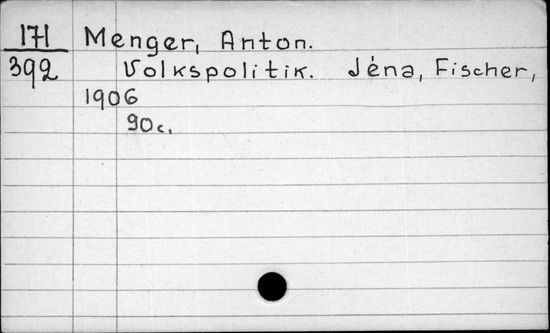 171 Menger, Anton.
392 Volkspolitik. Jéna, Fischer,
1906
90c.